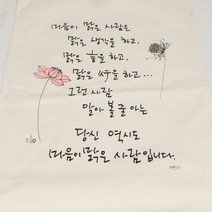 마음이 맑은 사람은
맑은 생각을 하고,
맑은 言을 하고,
맑은 行을 하고...
그런 사람
알아 볼 줄 아는
당신 역시도
마음이 맑은 사람입니다.